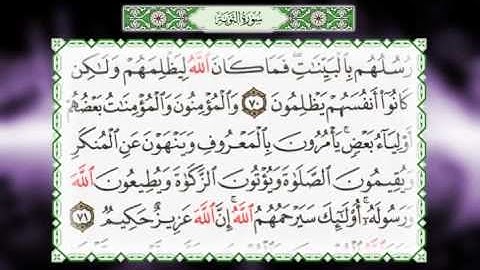 سُورَةُ التَّوْبَةِ
رُسُلُهُم بِٱلْبَيِّنَٰتِ ۖ فَمَا كَانَ ٱللَّهُ لِيَظْلِمَهُمْ وَلَٰكِن
كَانُوٓا۟ أَنفُسَهُمْ يَظْلِمُونَ ٧٠ وَٱلْمُؤْمِنُونَ وَٱلْمُؤْمِنَٰتُ بَعْضُهُمْ
أَوْلِيَآءُ بَعْضٍ ۚ يَأْمُرُونَ بِٱلْمَعْرُوفِ وَيَنْهَوْنَ عَنِ ٱلْمُنكَرِ
وَيُقِيمُونَ ٱلصَّلَوٰةَ وَيُؤْتُونَ ٱلزَّكَوٰةَ وَيُطِيعُونَ ٱللَّهَ
وَرَسُولَهُۥٓ ۚ أُو۟لَٰٓئِكَ سَيَرْحَمُهُمُ ٱللَّهُ ۗ إِنَّ ٱللَّهَ عَزِيزٌ حَكِيمٌ ٧١